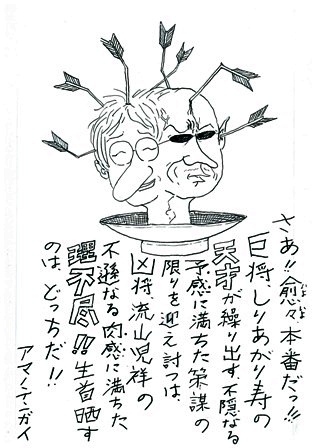 さあ!!愈々本番だっ!!!
巨将、しりあがり寿の
天才が繰り出す、不隠なる
予感に満ちた策謀の
限りを迎え討つは、
凶将、流山児祥の
不遜なる肉感に満ちた
理不尽!!生首晒す
のは、どっちだ!!
アマノテンガイ